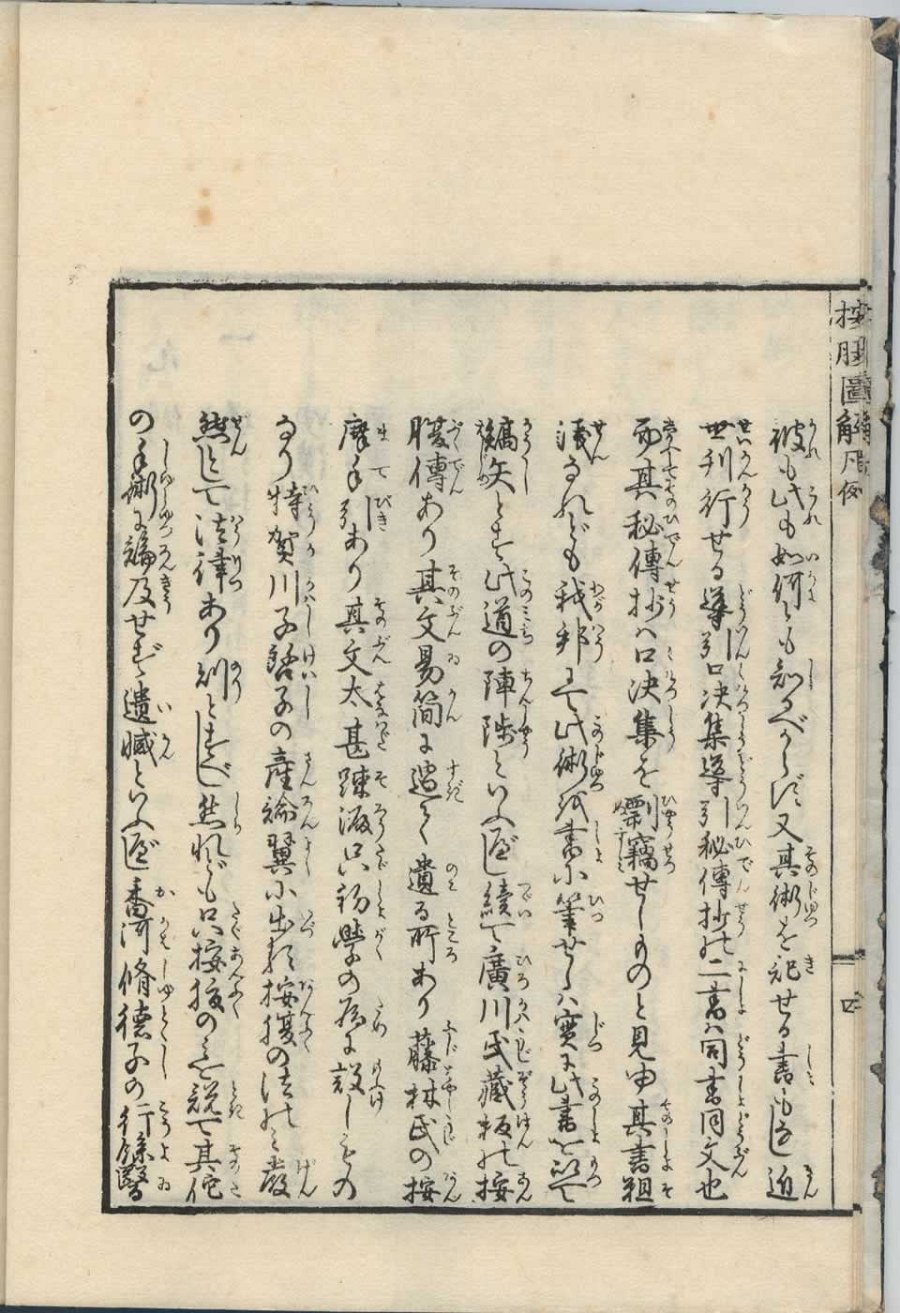 按腹圖解 凡例
彼も此も如何とも知べからず又其術を記せる書もなし近
世刊行せる導引口决集導引秘傳抄の二書ハ同書同文也
而其秘傳抄ハ口决集を剽竊せしものと見ゆ其書粗
淺なれども我邦にて此術我書に筆せしハ實に此書を以て
嚆矢とす此道の陳陟といふべし續て廣川氏藏板の按
腹傳あり其文易簡に過て遺る所あり藤林氏の按
摩手引あり其文太甚踈漏只初學の為に設しもの
なり特賀川子啓子の産論翼に出る按腹の法のミ嚴
然として法律あり則とすべし然れども只按腹のミを説て其佗
の手術に論及せず遺憾といふべし香河脩德子の行餘醫
四